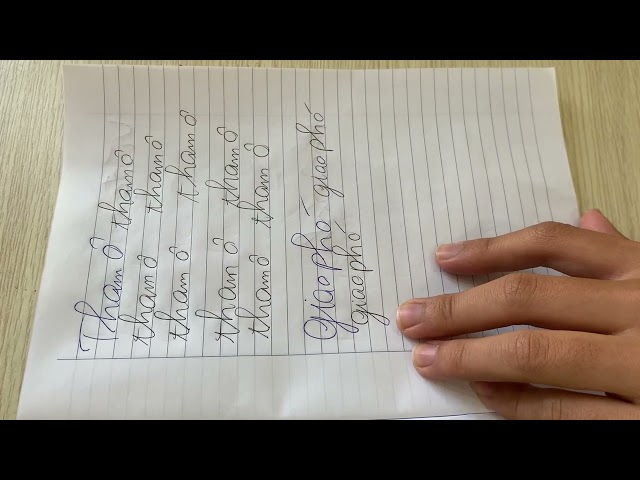 Tham ô tham ô
tham ô tham ô
tham ô tham ô
tham ô tham ô
tham ô tham ô
Giao phó giao phó
giao phó